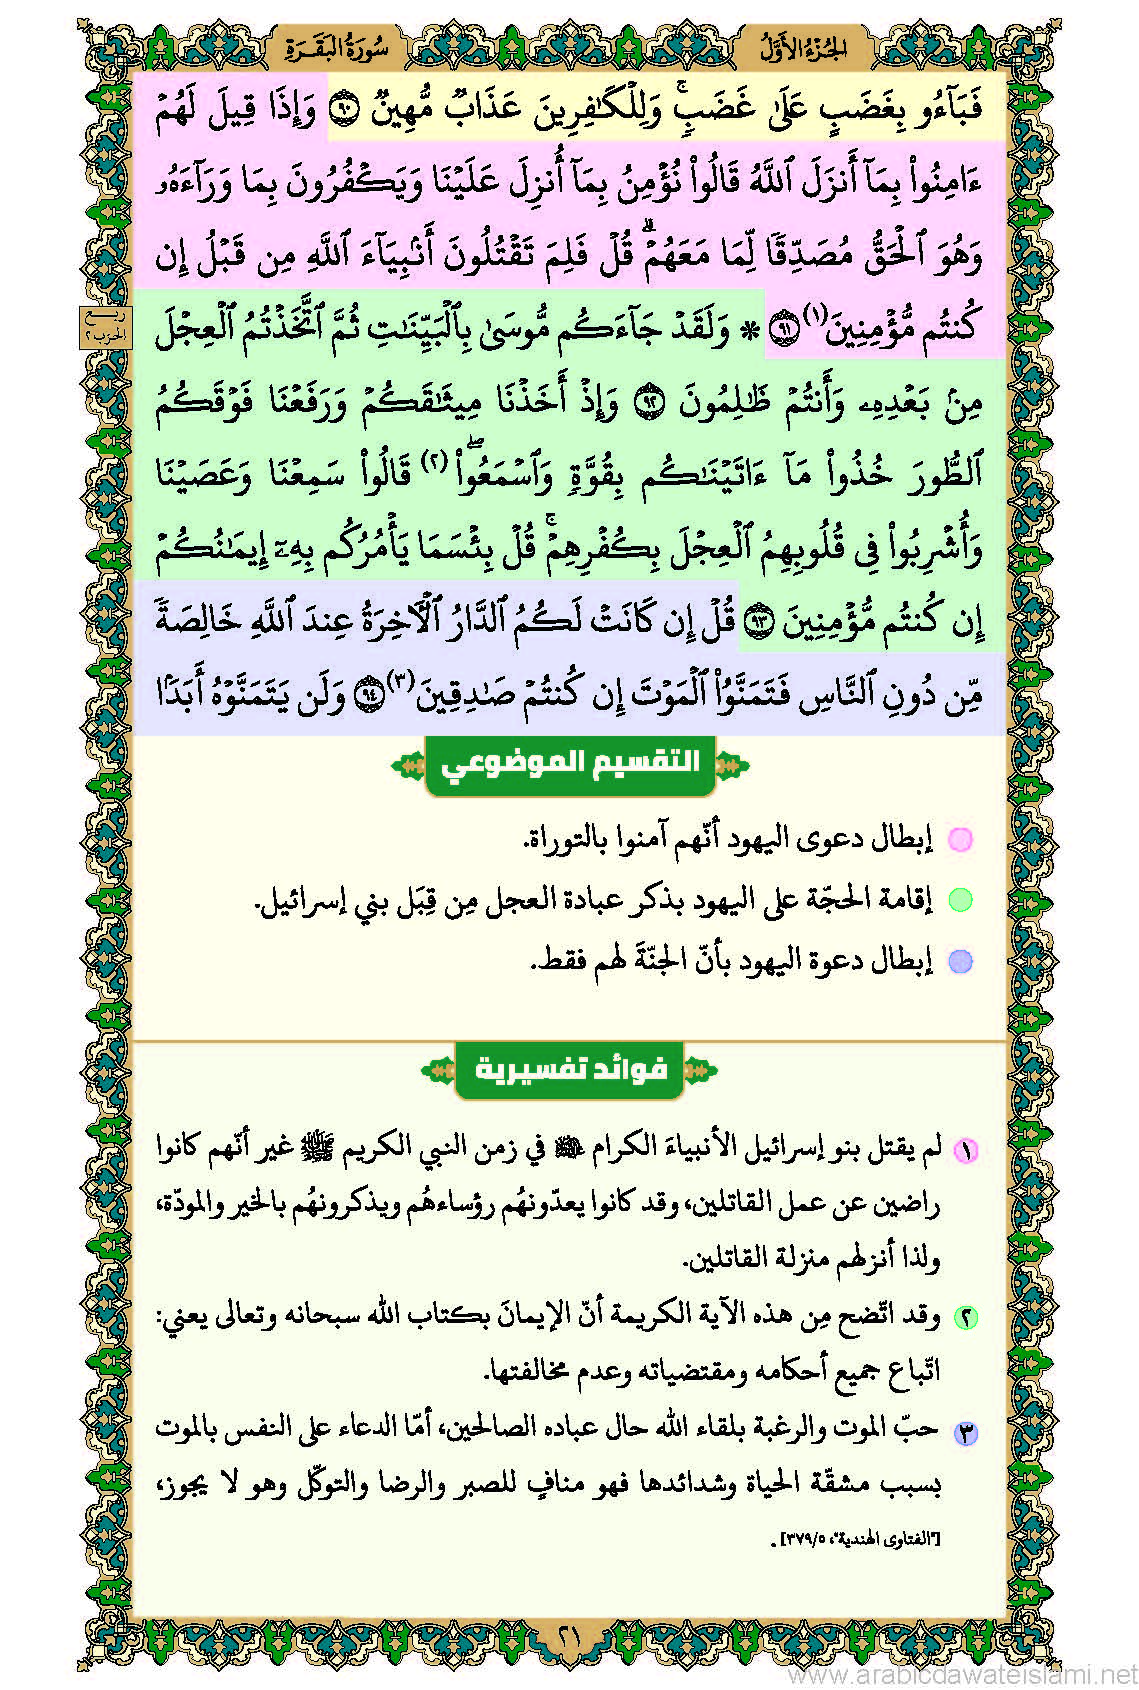 الجُزْءُ الأَوَّلُ
سُورَةُ البَقَرَةِ
فَبَآءُو بِغَضَبٍ عَلَىٰ غَضَبٍۚ وَلِلۡكَٰفِرِينَ عَذَابٞ مُّهِينٞ ٩٠ وَإِذَا قِيلَ لَهُمۡ
ءَامِنُواْ بِمَآ أَنزَلَ ٱللَّهُ قَالُواْ نُؤۡمِنُ بِمَآ أُنزِلَ عَلَيۡنَا وَيَكۡفُرُونَ بِمَا وَرَآءَهُۥ
وَهُوَ ٱلۡحَقُّ مُصَدِّقٗا لِّمَا مَعَهُمۡۗ قُلۡ فَلِمَ تَقۡتُلُونَ أَنۢبِيَآءَ ٱللَّهِ مِن قَبۡلُ إِن
كُنتُم مُّؤۡمِنِينَ(١) ٩١ ۞ وَلَقَدۡ جَآءَكُم مُّوسَىٰ بِٱلۡبَيِّنَٰتِ ثُمَّ ٱتَّخَذۡتُمُ ٱلۡعِجۡلَ
ربع الحزب ٢
مِنۢ بَعۡدِهِۦ وَأَنتُمۡ ظَٰلِمُونَ ٩٢ وَإِذۡ أَخَذۡنَا مِيثَٰقَكُمۡ وَرَفَعۡنَا فَوۡقَكُمُ
ٱلطُّورَ خُذُواْ مَآ ءَاتَيۡنَٰكُم بِقُوَّةٖ وَٱسۡمَعُواْۖ(٢) قَالُواْ سَمِعۡنَا وَعَصَيۡنَا
وَأُشۡرِبُواْ فِي قُلُوبِهِمُ ٱلۡعِجۡلَ بِكُفۡرِهِمۡۚ قُلۡ بِئۡسَمَا يَأۡمُرُكُم بِهِۦٓ إِيمَٰنُكُمۡ
إِن كُنتُم مُّؤۡمِنِينَ ٩٣ قُلۡ إِن كَانَتۡ لَكُمُ ٱلدَّارُ ٱلۡأٓخِرَةُ عِندَ ٱللَّهِ خَالِصَةٗ
مِّن دُونِ ٱلنَّاسِ فَتَمَنَّوُاْ ٱلۡمَوۡتَ إِن كُنتُمۡ صَٰدِقِينَ(٣) ٩٤ وَلَن يَتَمَنَّوۡهُ أَبَدَۢا
التقسيم الموضوعي
إبطال دعوى اليهود أنّهم آمنوا بالتوراة.
إقامة الحجّة على اليهود بذكر عبادة العجل مِن قِبَل بني إسرائيل.
إبطال دعوة اليهود بأنّ الجنّةَ لهم فقط.
فوائد تفسيرية
١ لم يقتل بنو إسرائيل الأنبياءَ الكرام في زمن النبي الكريم ﷺ غير أنّهم كانوا
راضين عن عمل القاتلين، وقد كانوا يعدّونهُم رؤساءهُم ويذكرونهُم بالخير والمودّة،
ولذا أنزلهم منزلة القاتلين.
٢ وقد اتّضح مِن هذه الآية الكريمة أنّ الإيمانَ بكتاب الله سبحانه وتعالى يعني:
اتّباع جميع أحكامه ومقتضياته وعدم مخالفتها.
٣ حبّ الموت والرغبة بلقاء الله حال عباده الصالحين، أمّا الدعاء على النفس بالموت
بسبب مشقّة الحياة وشدائدها فهو منافٍ للصبر والرضا والتوكّل وهو لا يجوز،
["الفتاوى الهندية"، ٣٧٩/٥].
٢١
www.arabicdawateislami.net